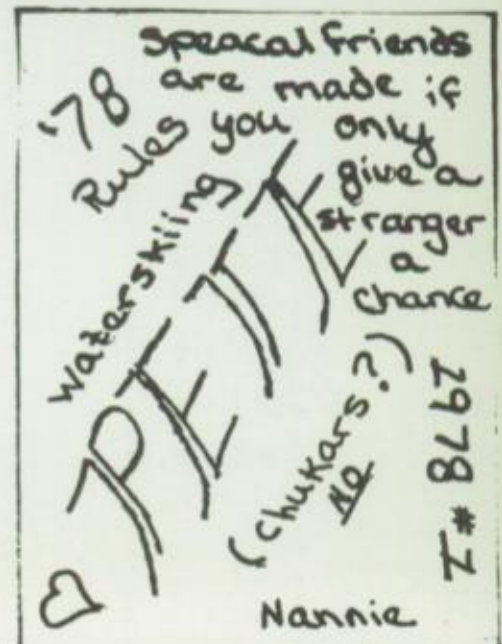 speacal friends
are made if
you only
give a
stranger
a
chance
'78
Rules
Waterskiing
PETE
(Chukars?)
No
1978 #1
♡
Nannie